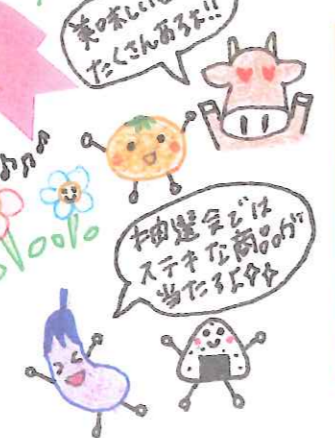 美味しいもの
たくさんあるよ!!
抽選会では
ステキな商品が
当たるよ✨